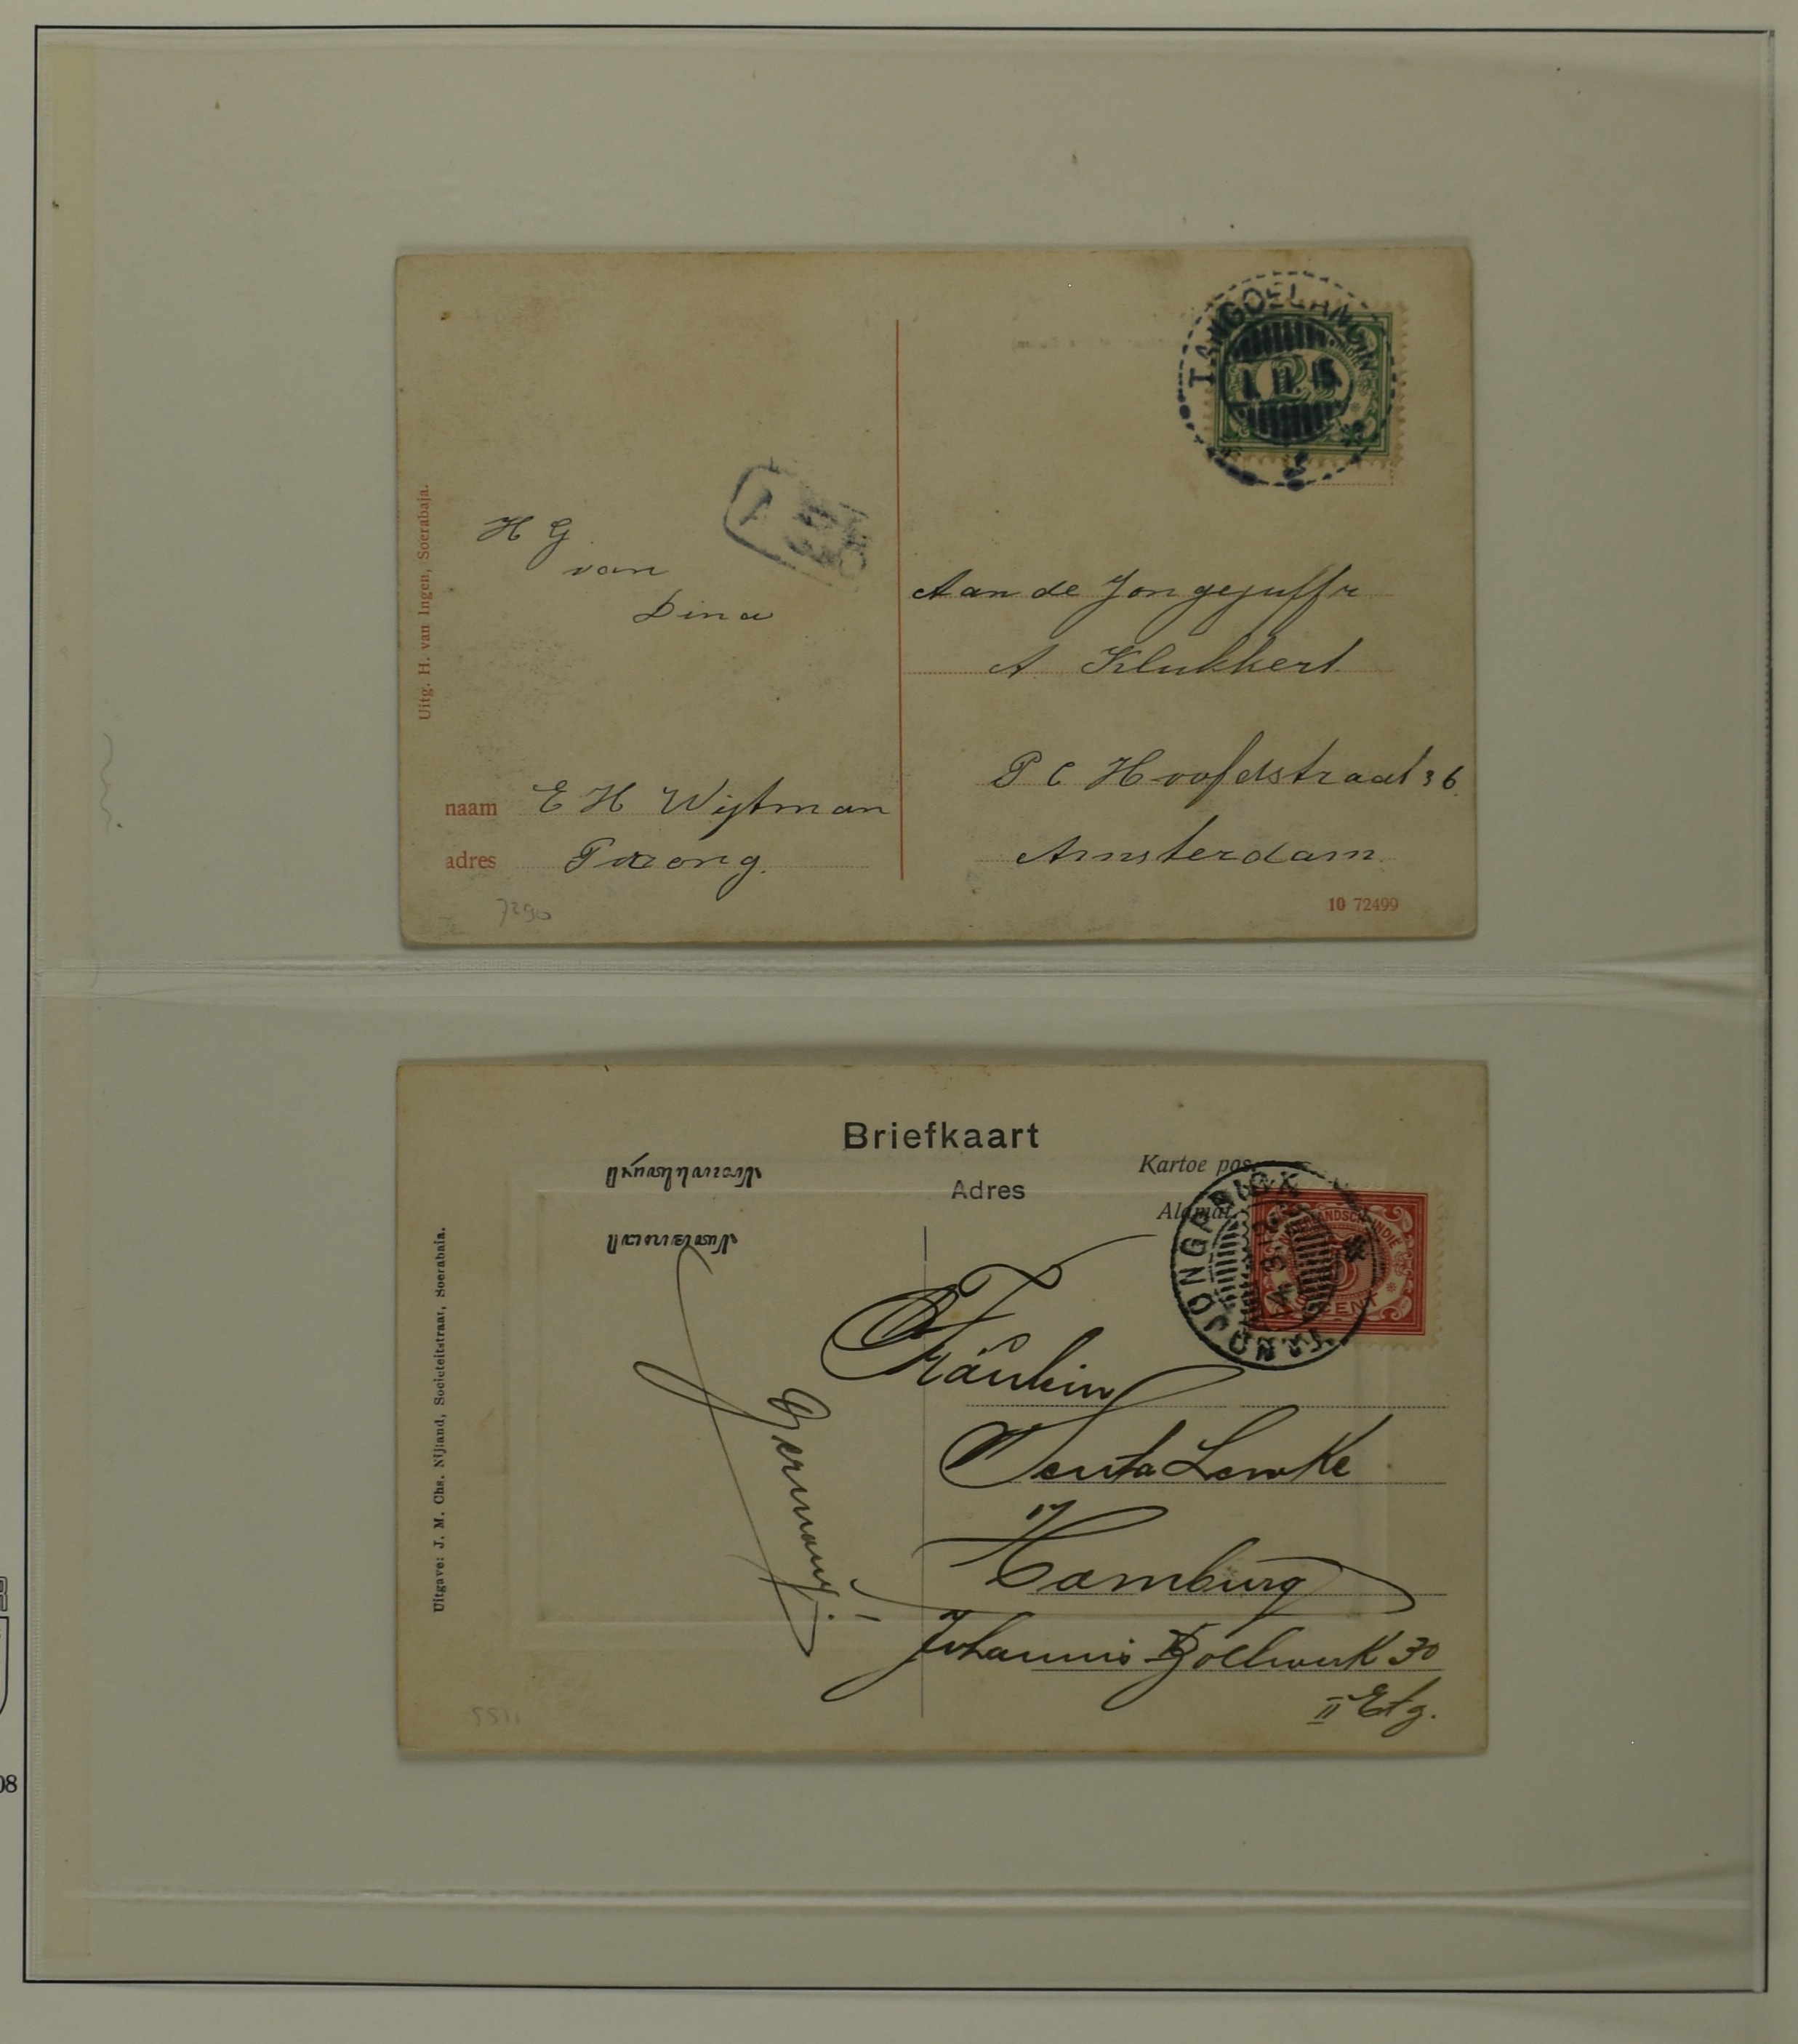 TANGOELANGIN
Uitg. H. van Ingen, Soerabaja.
H G
van
Dina
Aan de Jongejuffr
A Klukkert
P C Hoofdstraat 36.
Amsterdam
naam E H Wijtman
adres Porong.
10 72499
7290
Briefkaart
Kartoe pos.
Adres
Alamat
TANDJONGPRIOK
NEDERLANDSCH-INDIE
5 CENT
Uitgave: J. M. Chs. Nijland, Societeitstraat, Soerabaia.
Fräulein
Senta Lemke
Hamburg
Johannis Bollwerk 30
II Etg.
Germany!
5511
08